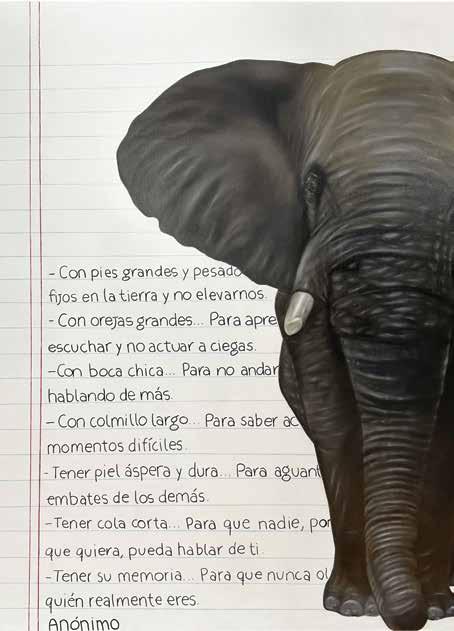 - Con pies grandes y pesado
fijos en la tierra y no elevarnos.
- Con orejas grandes... Para apre
escuchar y no actuar a ciegas.
-Con boca chica... Para no andar
hablando de más.
- Con colmillo largo... Para saber ac
momentos difíciles.
- Tener piel áspera y dura... Para aguant
embates de los demás.
-Tener cola corta... Para que nadie, por
que quiera, pueda hablar de ti.
-Tener su memoria... Para que nunca ol
quién realmente eres.
Anónimo